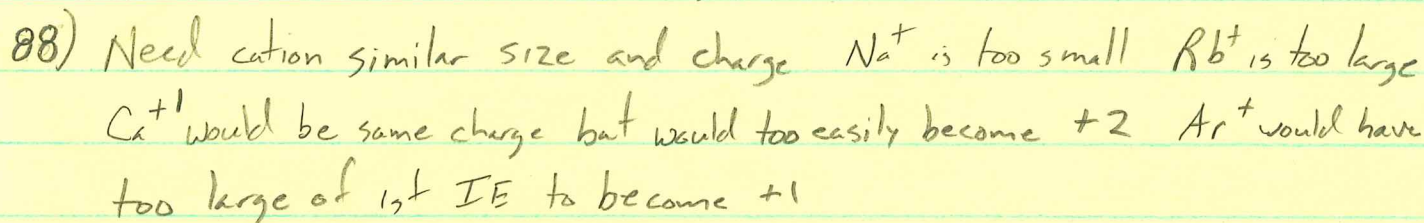 88) Need cation similar size and charge Na⁺ is too small Rb⁺ is too large
Ca⁺¹ would be same charge but would too easily become +2 Ar⁺ would have
too large of 1st IE to become +1